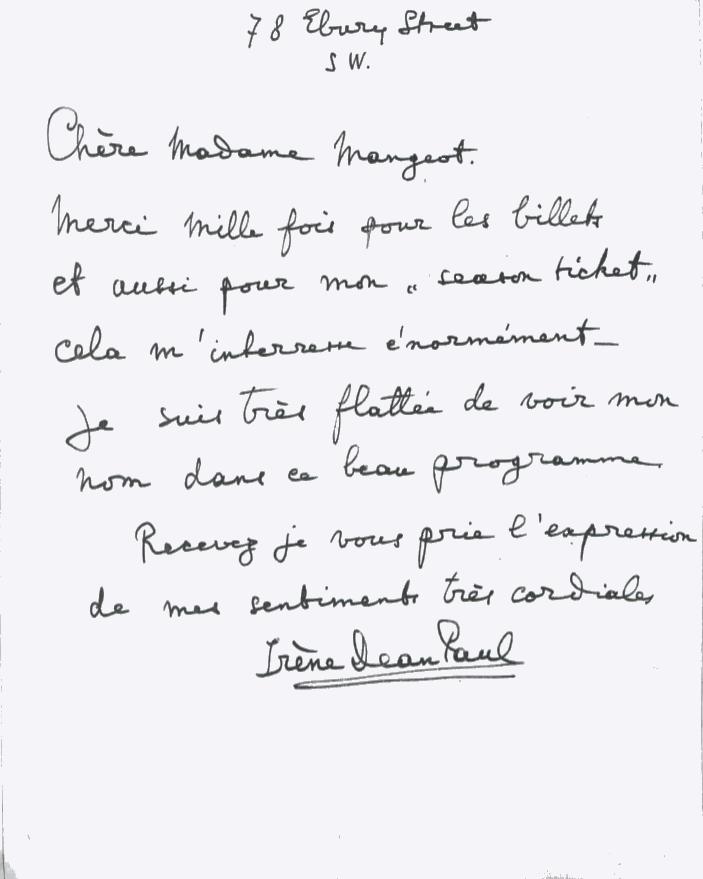 78 Ebury Street
SW.
Chère Madame Mangeot.
Merci mille fois pour les billets
et aussi pour mon „ season ticket„
cela m'interresse énormément_
Je suis très flattée de voir mon
nom dans ce beau programme.
Recevez je vous prie l'expression
de mes sentiments très cordiales
Irène Dean Paul